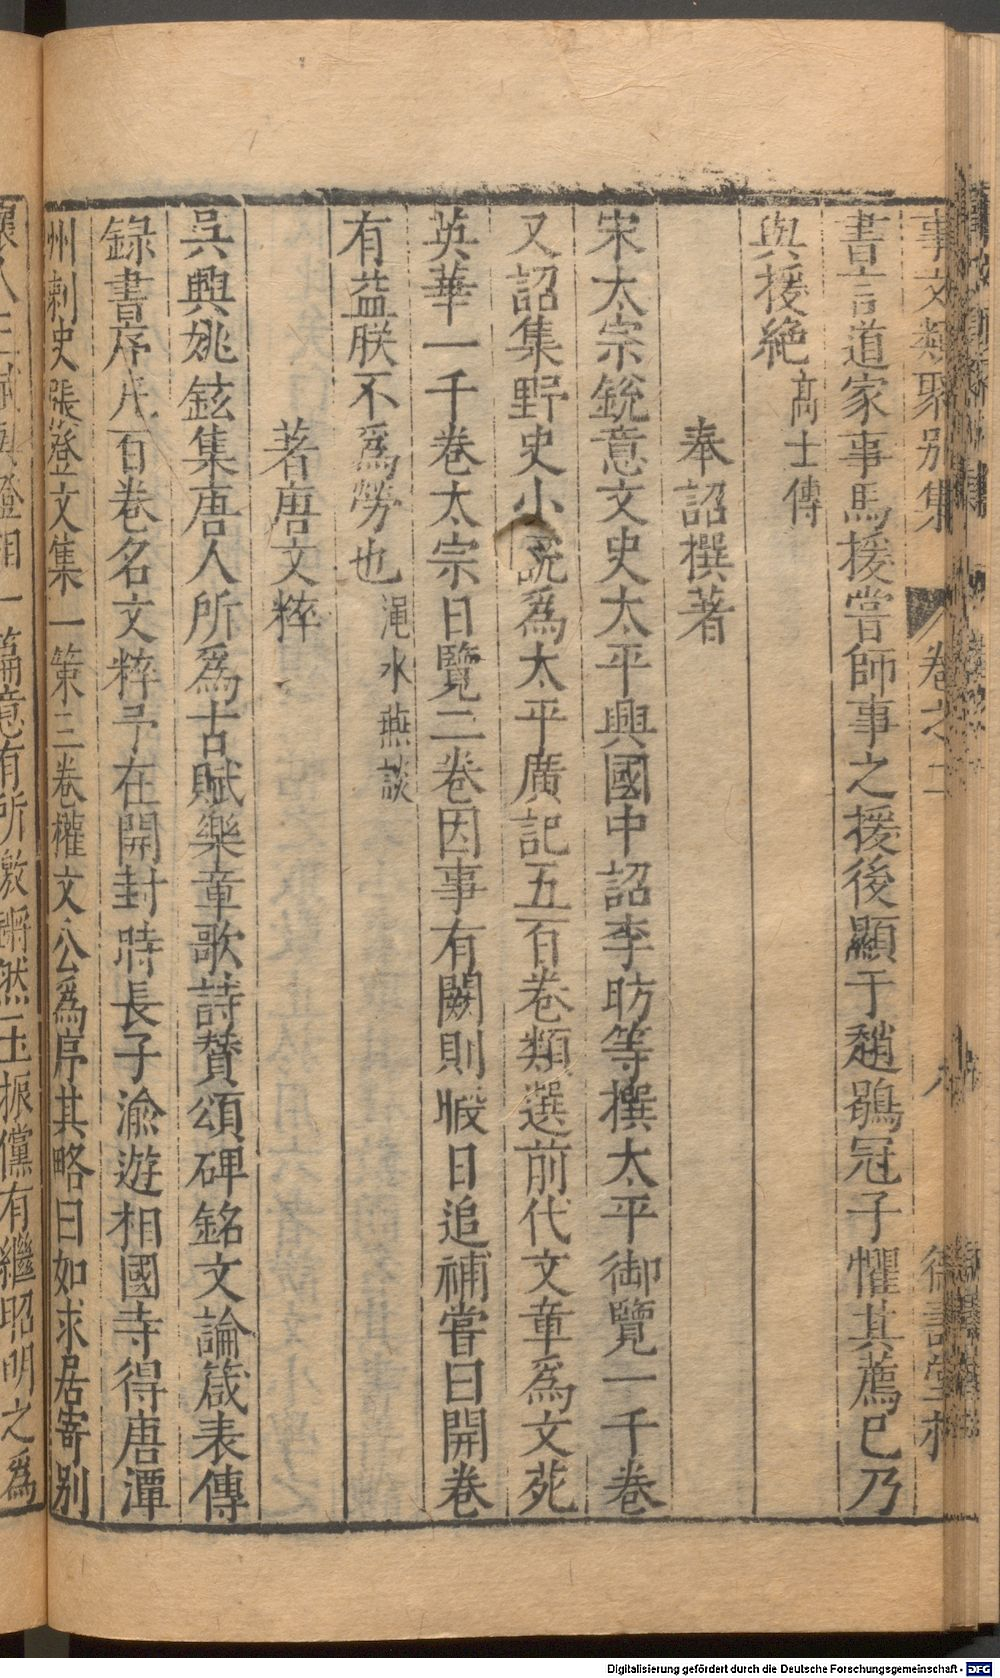 事文類聚別集 卷之二
書言道家事馬援嘗師事之援後顯于趙鶡冠子懼其薦已乃
與援絶 高士傳
奉詔撰著
宋太宗銳意文史太平興國中詔李昉等撰太平御覽一千卷
又詔集野史小說爲太平廣記五百卷類選前代文章爲文苑
英華一千卷太宗日覽三卷因事有闕則暇日追補嘗曰開卷
有益朕不爲勞也 澠水燕談
著唐文粹
吳興姚鉉集唐人所爲古賦樂章歌詩賛頌碑銘文論箴表傳
録書序凡百卷名文粹予在開封時長子渝遊相國寺得唐潭
州刺史張登文集一策三卷權文公爲序其略曰如求居寄別
一篇意有所激鏘然玉振儻有繼昭明之爲
Digitalisierung gefördert durch die Deutsche Forschungsgemeinschaft - DFG